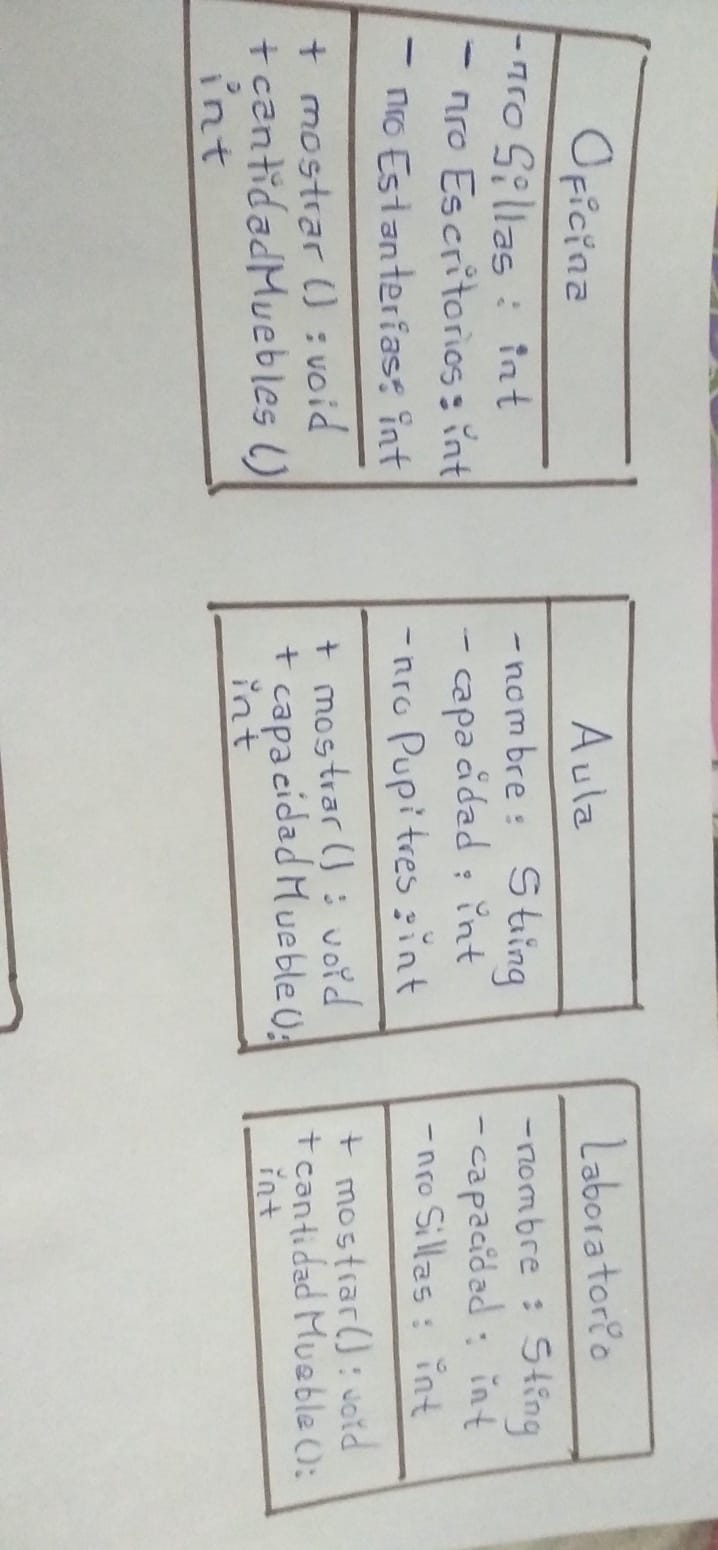 Oficina
- nro Sillas : int
- nro Escritorios : int
- nro Estanterias : int
+ mostrar () : void
+ cantidadMuebles ()
int
Aula
- nombre : Sting
- capacidad : int
- nro Pupitres : int
+ mostrar () : void
+ capacidadMueble () :
int
Laboratorio
- nombre : Sting
- capacidad : int
- nro Sillas : int
+ mostrar () : void
+ cantidadMueble () :
int